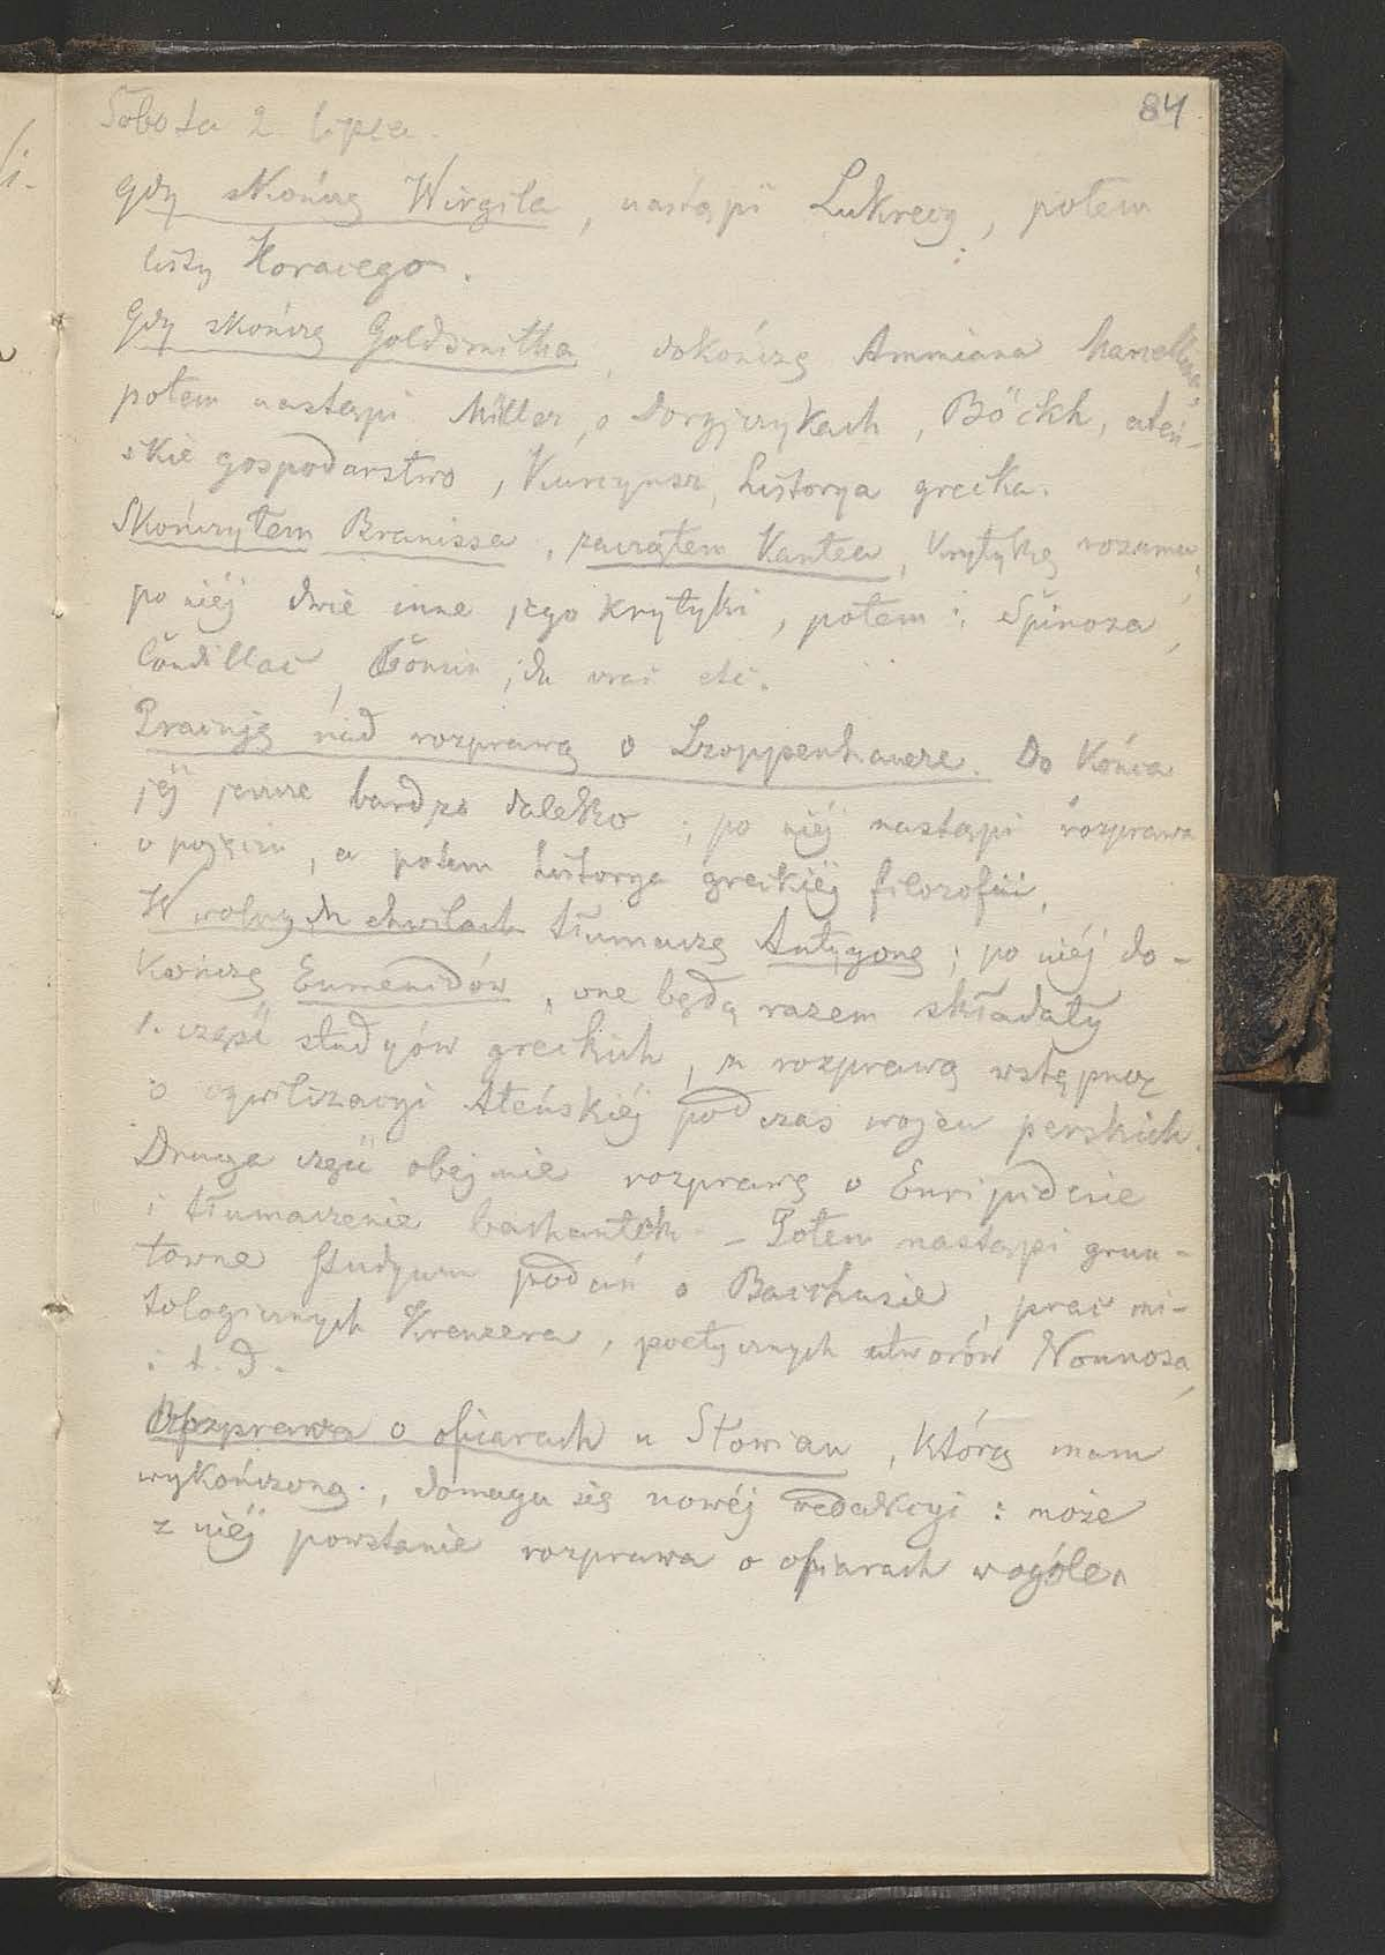 84
Sobota 2 lipca.
Gdy skończę Wirgila, nastąpi Lukrecy, potem
listy Horacego.
Gdy skończę Goldsmitha, dokończę Ammiana Marcellina,
potem nastąpi Müller, o Doryjczykach, Böckh, ateń-
skie gospodarstwo, Kurcyusz, historya grecka.
Skończyłem Branissa, zacząłem Kanta, Krytykę rozumu,
po niéj dwie inne jego krytyki, potem: Spinoza,
Condillac, Cousin, du vrai etc.
Pracuję nad rozprawą o Szoppenhauerze. Do końca
jéj jeszcze bardzo daleko; po niéj nastąpi rozprawa
o pojęciu, a potem historya greckiéj filozofii.
W wolnych chwilach tłumaczę Antygonę; po niéj do-
kończę Eumenidów, one będą razem składały
1. część studyów greckich, z rozprawą wstępną
o cywilizacyi Ateńskiéj podczas wojen perskich.
Druga część obejmie rozprawę o Euripidesie
i tłumaczenie bachantek – Potem nastąpi grun-
towne studyum podań o Bacchusie, prac mi-
tologicznych Kreuzera, poetycznych utworów Nonnosa,
i t. d.
Rozprawa o ofiarach u Słowian, którą mam
wykończoną, domaga się nowéj redakcyi: może
z niéj powstanie rozprawa o ofiarach w ogóle.